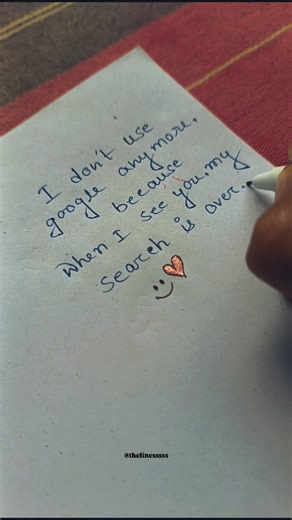 I don't use
google anymore,
because
when I see you, my
search is over.
@thelinesssss